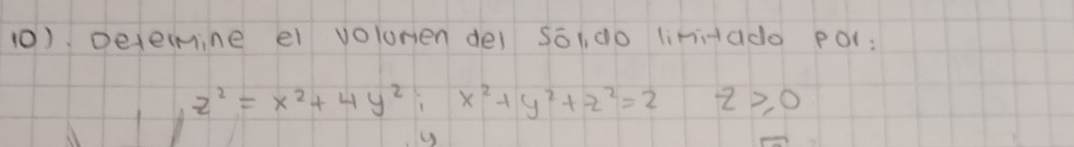 10). Determine el volumen del sólido limitado por:
z² = x² + 4y² ; x² + y² + z² = 2 z ≥ 0
y